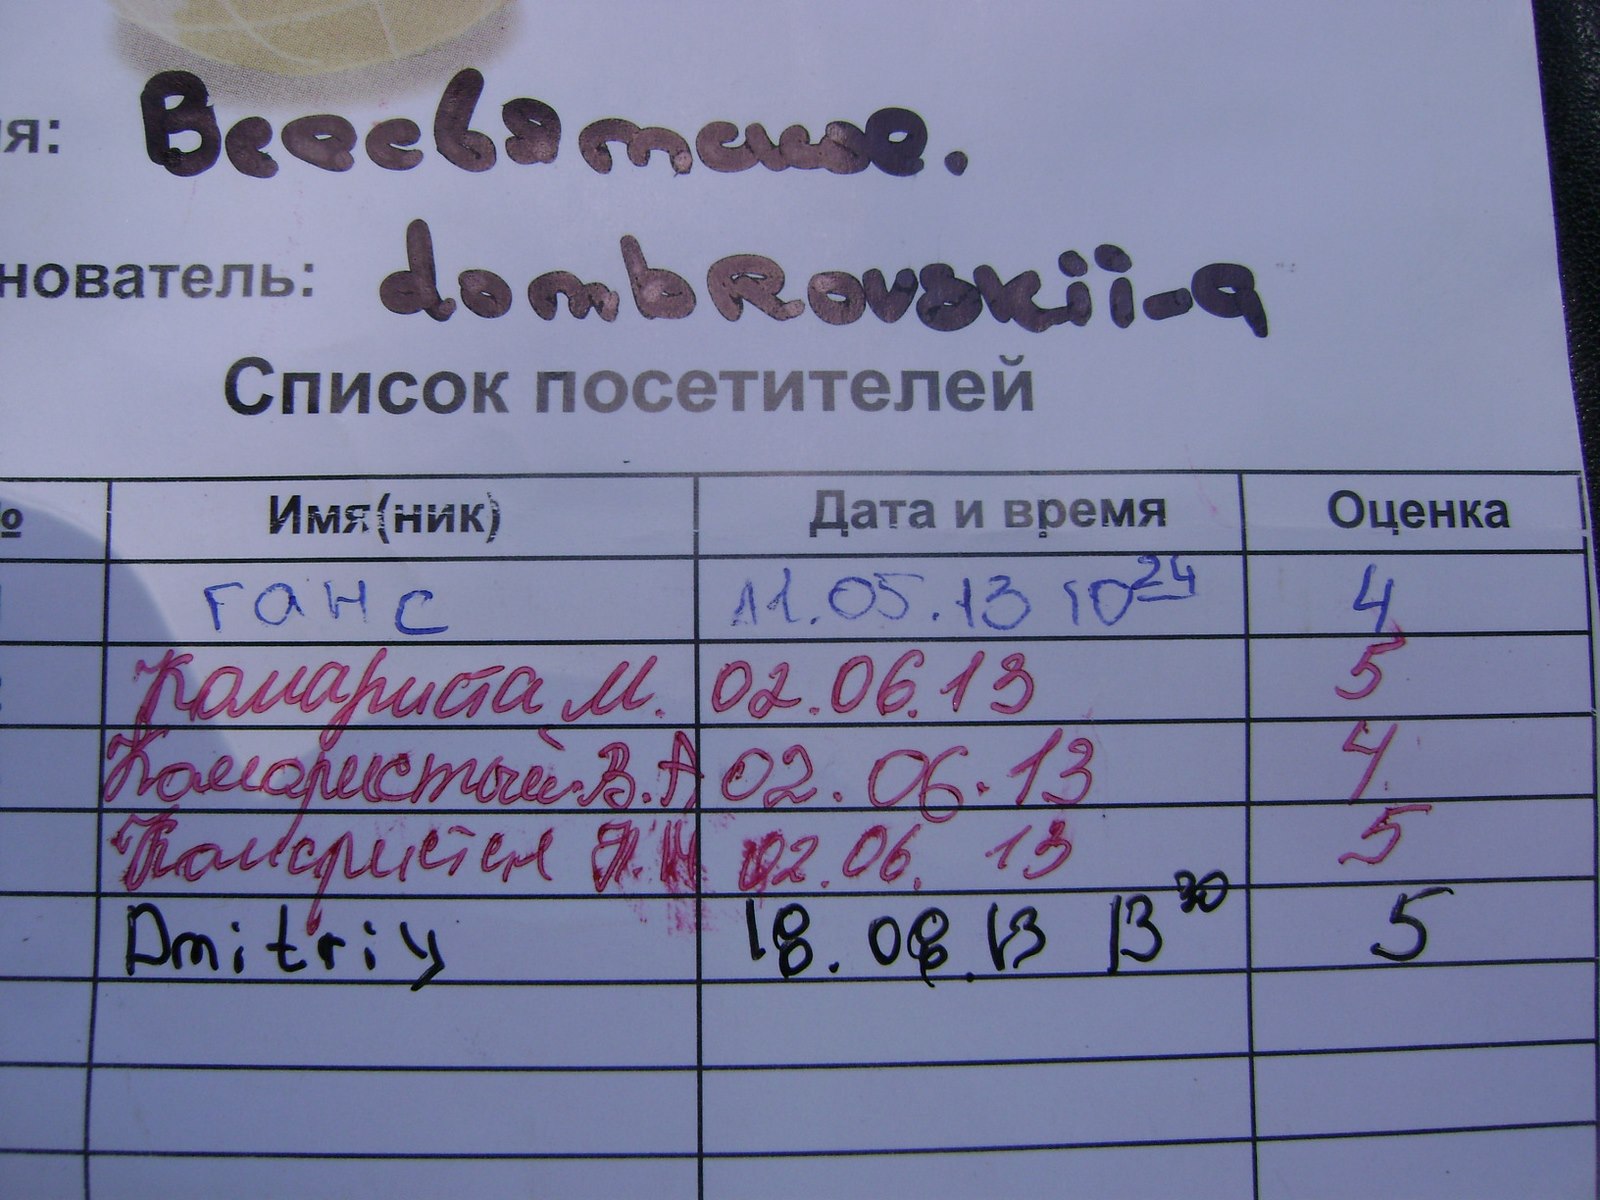 ия: Всесвятское.
нователь: dombRovskii-a
Список посетителей
№ Имя(ник) Дата и время Оценка
ганс 11.05.13 10 24 4
Камариста М. 02.06.13 5
Камаристый В.А 02.06.13 4
02.06.13 5
Dmitriy 18.08.13 13 30 5